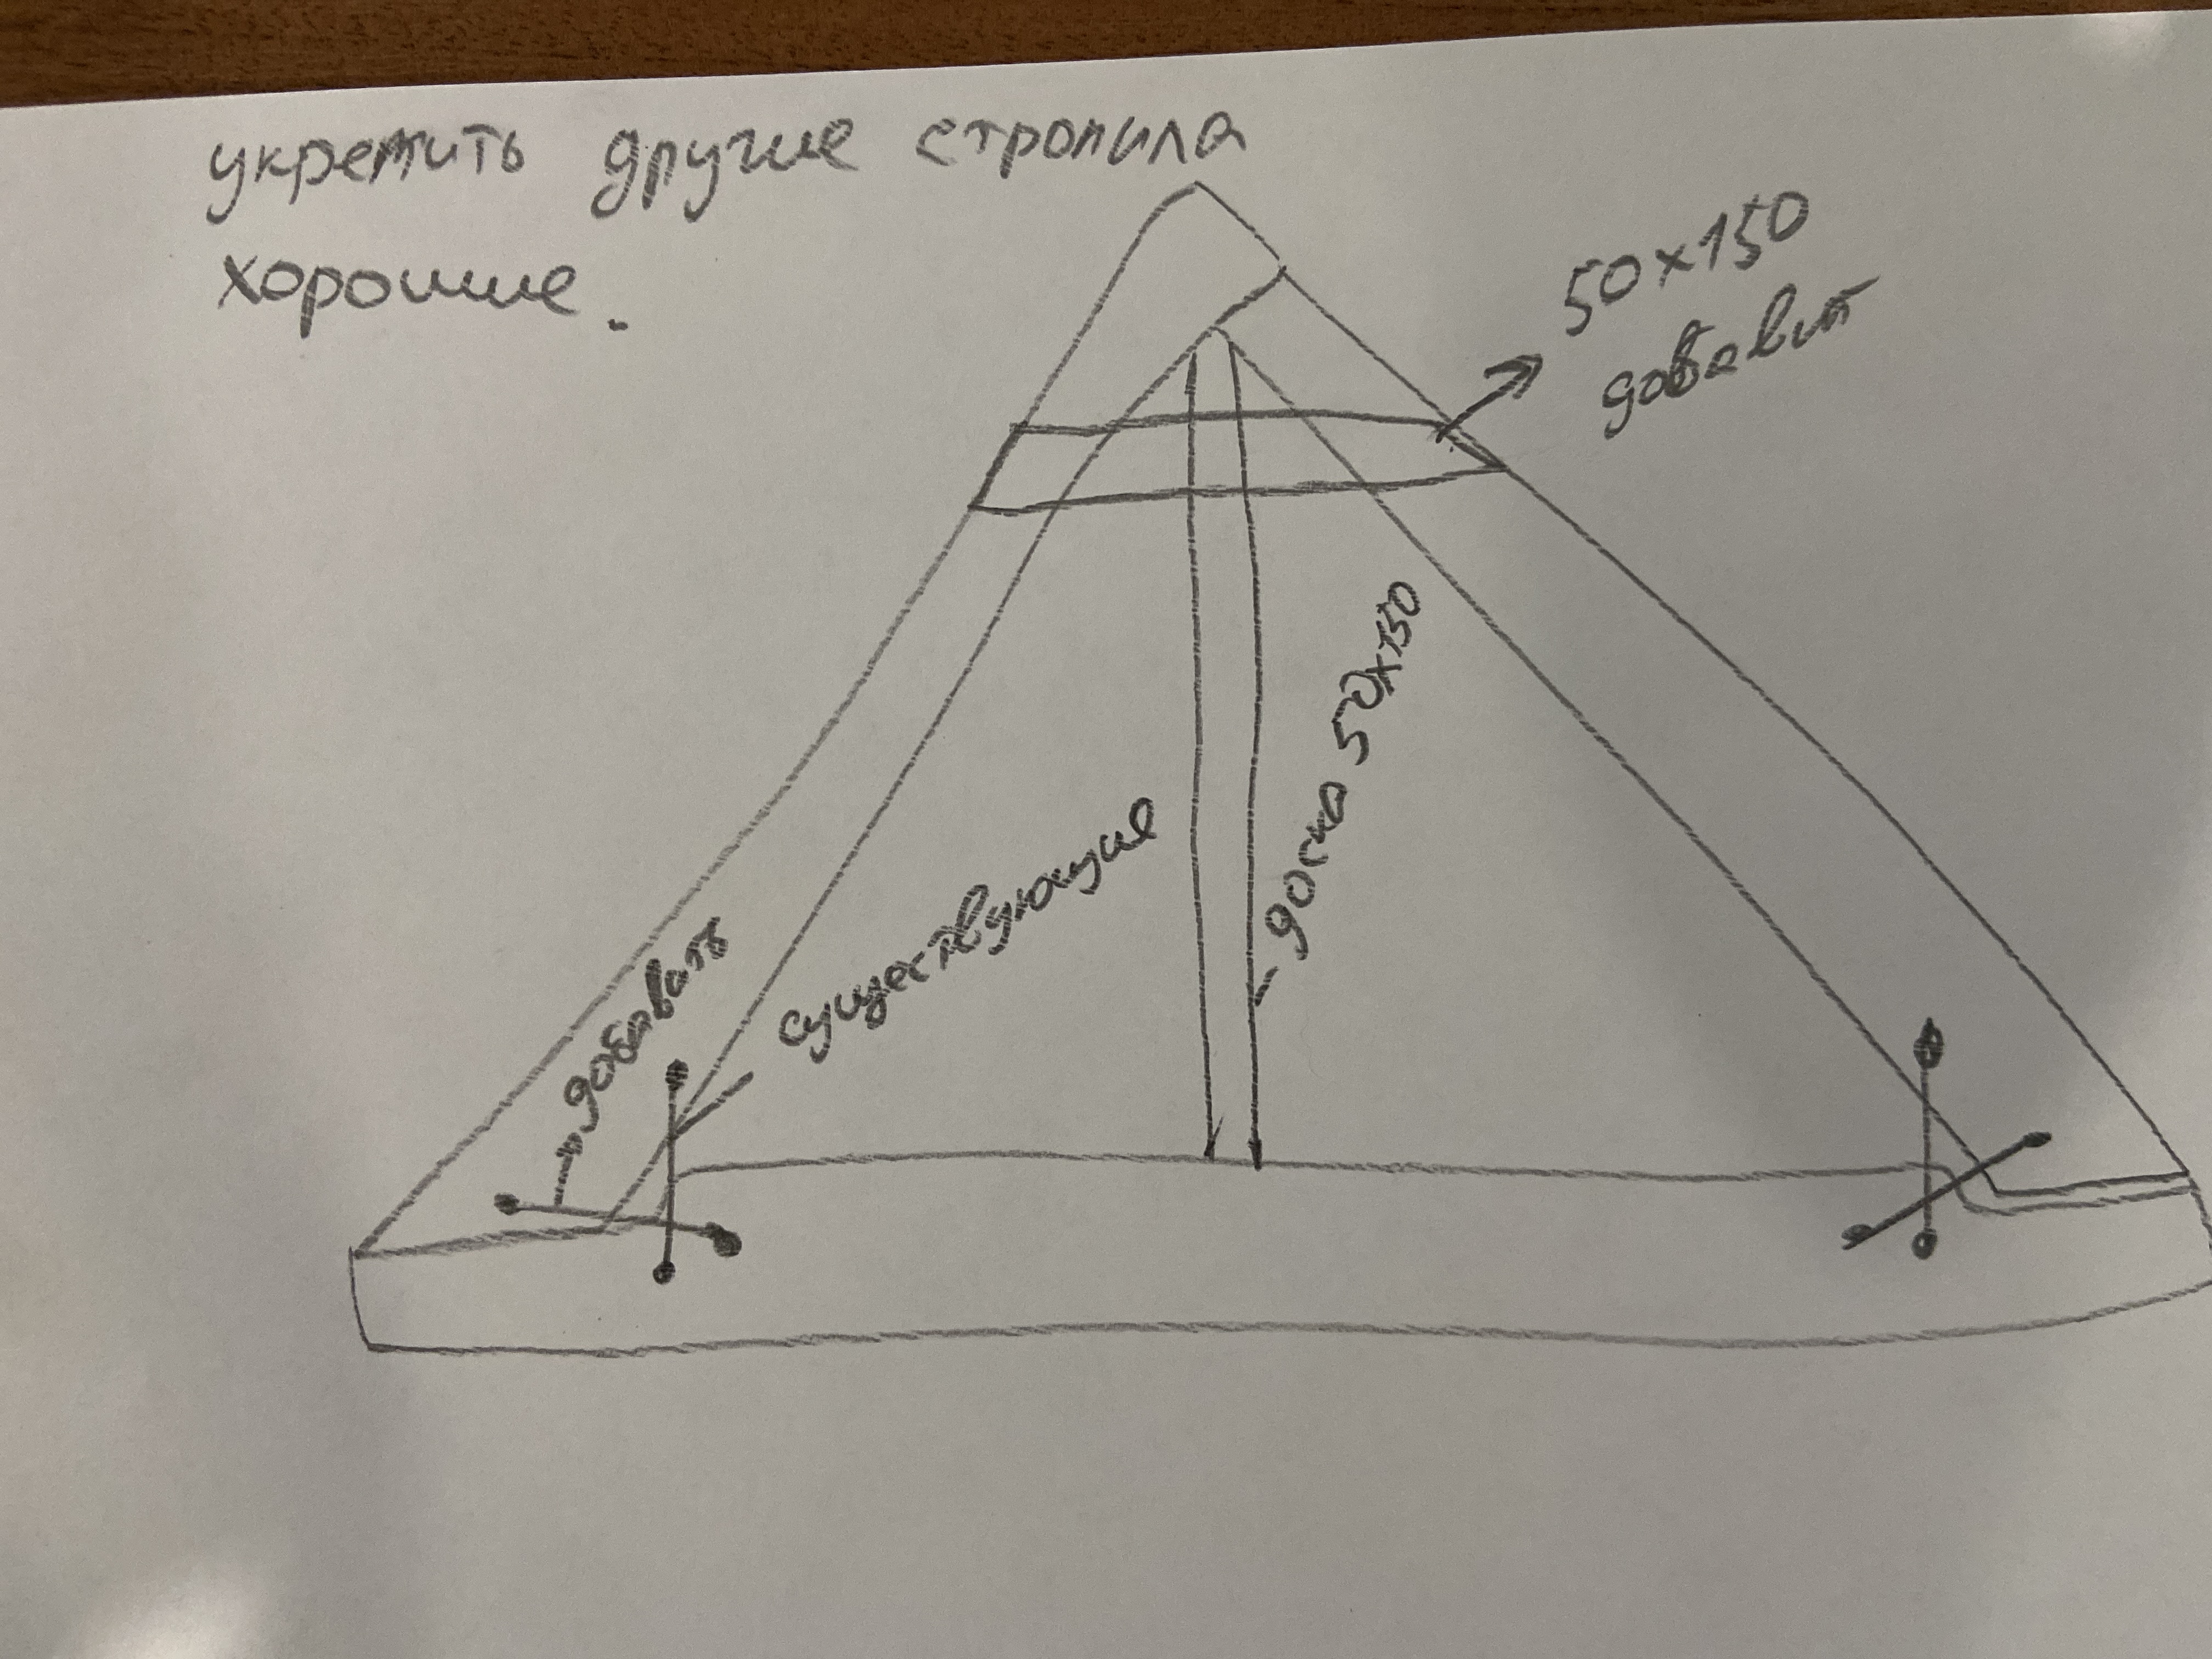 укрепить другие стропила
хорошие.
50х150
добавит
доска 50х150
существующие
добавить